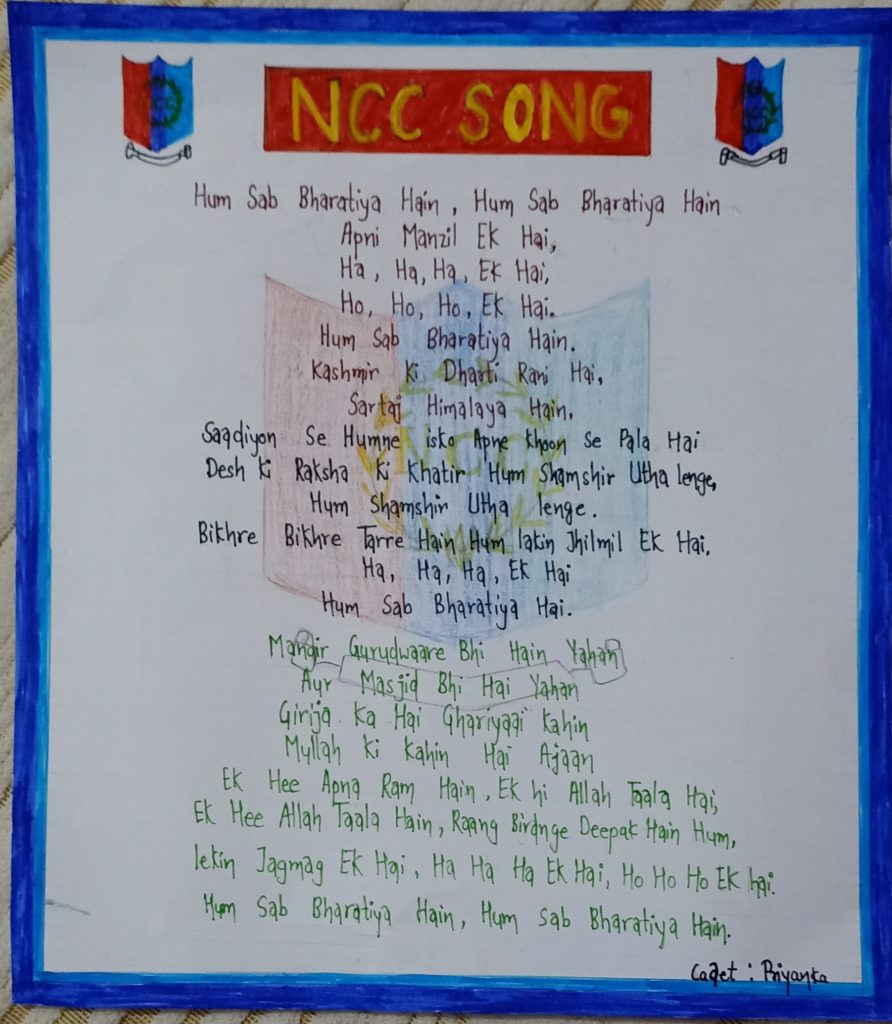 NCC SONG
Hum Sab Bharatiya Hain, Hum Sab Bharatiya Hain
Apni Manzil Ek Hai,
Ha, Ha, Ha, Ek Hai,
Ho, Ho, Ho, Ek Hai.
Hum Sab Bharatiya Hain.
Kashmir Ki Dharti Rani Hai,
Sartaj Himalaya Hain,
Saadiyon Se Humne isko Apne khoon se Pala Hai
Desh Ki Raksha Ki Khatir Hum Shamshir Utha lenge,
Hum Shamshir Utha lenge.
Bikhre Bikhre Tarre Hain Hum lakin Jhilmil Ek Hai,
Ha, Ha, Ha, Ek Hai
Hum Sab Bharatiya Hai.
Mandir Gurudwaare Bhi Hain Yahan
Aur Masjid Bhi Hai Yahan
Girija Ka Hai Ghariyaai Kahin
Mullah Ki Kahin Hai Ajaan
Ek Hee Apna Ram Hain, Ek hi Allah Taala Hai,
Ek Hee Allah Taala Hain, Raang Birange Deepak Hain Hum,
lekin Jagmag Ek Hai, Ha Ha Ha Ek Hai, Ho Ho Ho Ek hai.
Hum Sab Bharatiya Hain, Hum Sab Bharatiya Hain.
Cadet : Priyanka
NCC